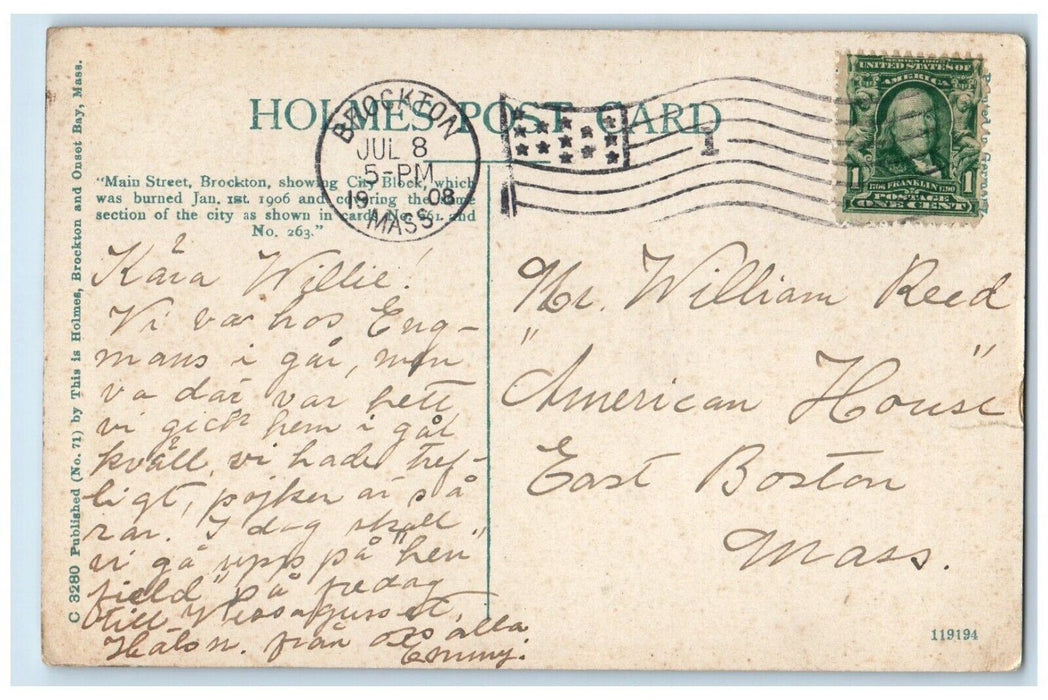 HOLMES POST CARD
BROCKTON
JUL 8
5-PM
19 08
MASS
1
SERIES 1902
UNITED STATES OF
AMERICA
1 1706 FRANKLIN 1790 1
POSTAGE
ONE CENT
Printed in Germany
"Main Street, Brockton, showing City Block, which
was burned Jan. 1st. 1906 and covering the same
section of the city as shown in cards No. 261. and
No. 263."
C 3280 Published (No. 71) by This is Holmes, Brockton and Onset Bay, Mass.
Kåra Willie!
Vi var hos Eng-
mans i går, men
va där var hett
vi gick hem i går
kväll, vi hade tref-
ligt, pojken är så
rar. I dag skall
vi gå upp på "hen
field" på fredag
till
Hälsn. från oss alla
Emmy.
Mr. William Reed
"American House"
East Boston
Mass.
119194